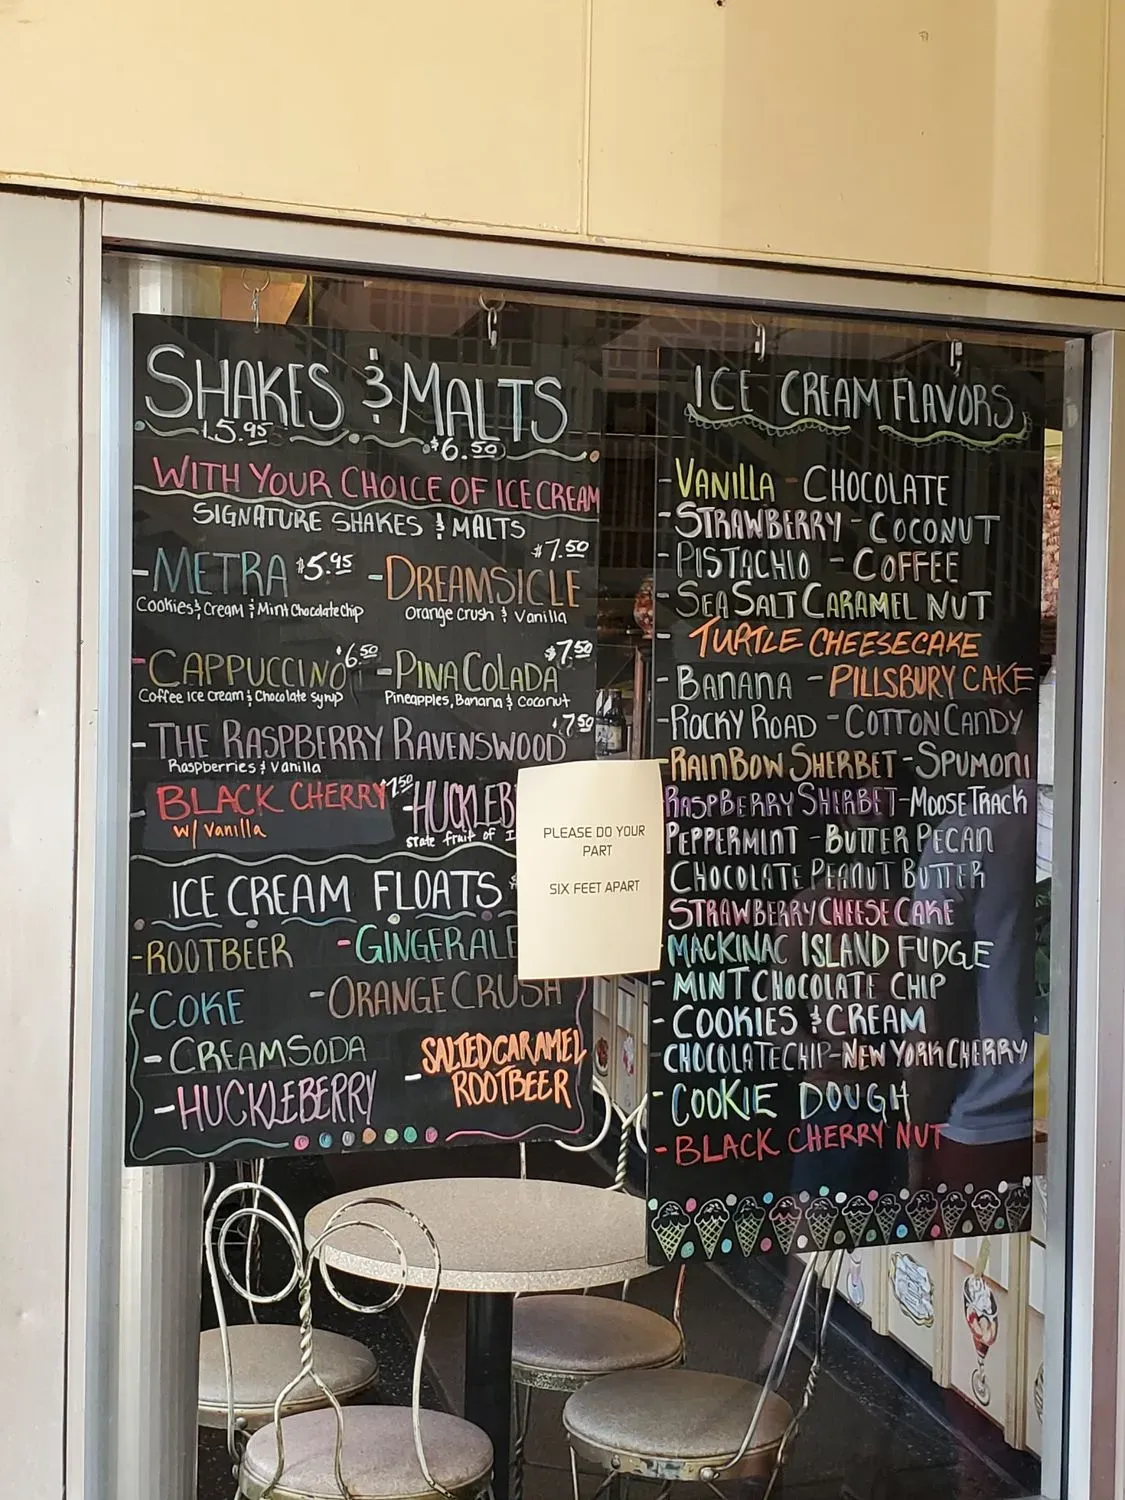 SHAKES & MALTS
$5.95
$6.50
WITH YOUR CHOICE OF ICE CREAM
SIGNATURE SHAKES & MALTS
-METRA $5.95
Cookies & Cream & Mint Chocolate Chip
-DREAMSICLE $7.50
Orange Crush & Vanilla
-CAPPUCCINO $6.50
Coffee Ice Cream & Chocolate Syrup
-PINA COLADA $7.50
Pineapples, Banana & Coconut
-THE RASPBERRY RAVENSWOOD 7.50
Raspberries & Vanilla
BLACK CHERRY 7.50
w/ Vanilla
-HUCKLEB
State fruit of I
ICE CREAM FLOATS
-ROOTBEER -GINGERALE
-COKE -ORANGE CRUSH
-CREAM SODA
-SALTED CARAMEL
ROOTBEER
-HUCKLEBERRY
PLEASE DO YOUR
PART
SIX FEET APART
ICE CREAM FLAVORS
-VANILLA - CHOCOLATE
-STRAWBERRY - COCONUT
-PISTACHIO - COFFEE
-SEA SALT CARAMEL NUT
- TURTLE CHEESECAKE
-BANANA - PILLSBURY CAKE
-ROCKY ROAD - COTTON CANDY
-RAINBOW SHERBET - SPUMONI
RASPBERRY SHERBET - MOOSE TRACK
PEPPERMINT - BUTTER PECAN
CHOCOLATE PEANUT BUTTER
STRAWBERRY CHEESE CAKE
MACKINAC ISLAND FUDGE
- MINT CHOCOLATE CHIP
- COOKIES & CREAM
-CHOCOLATE CHIP - NEW YORK CHERRY
- COOKIE DOUGH
- BLACK CHERRY NUT